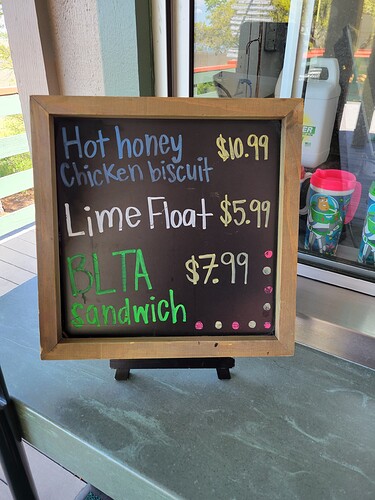 Hot honey $10.99
Chicken biscuit
Lime Float $5.99
BLTA $7.99
sandwich